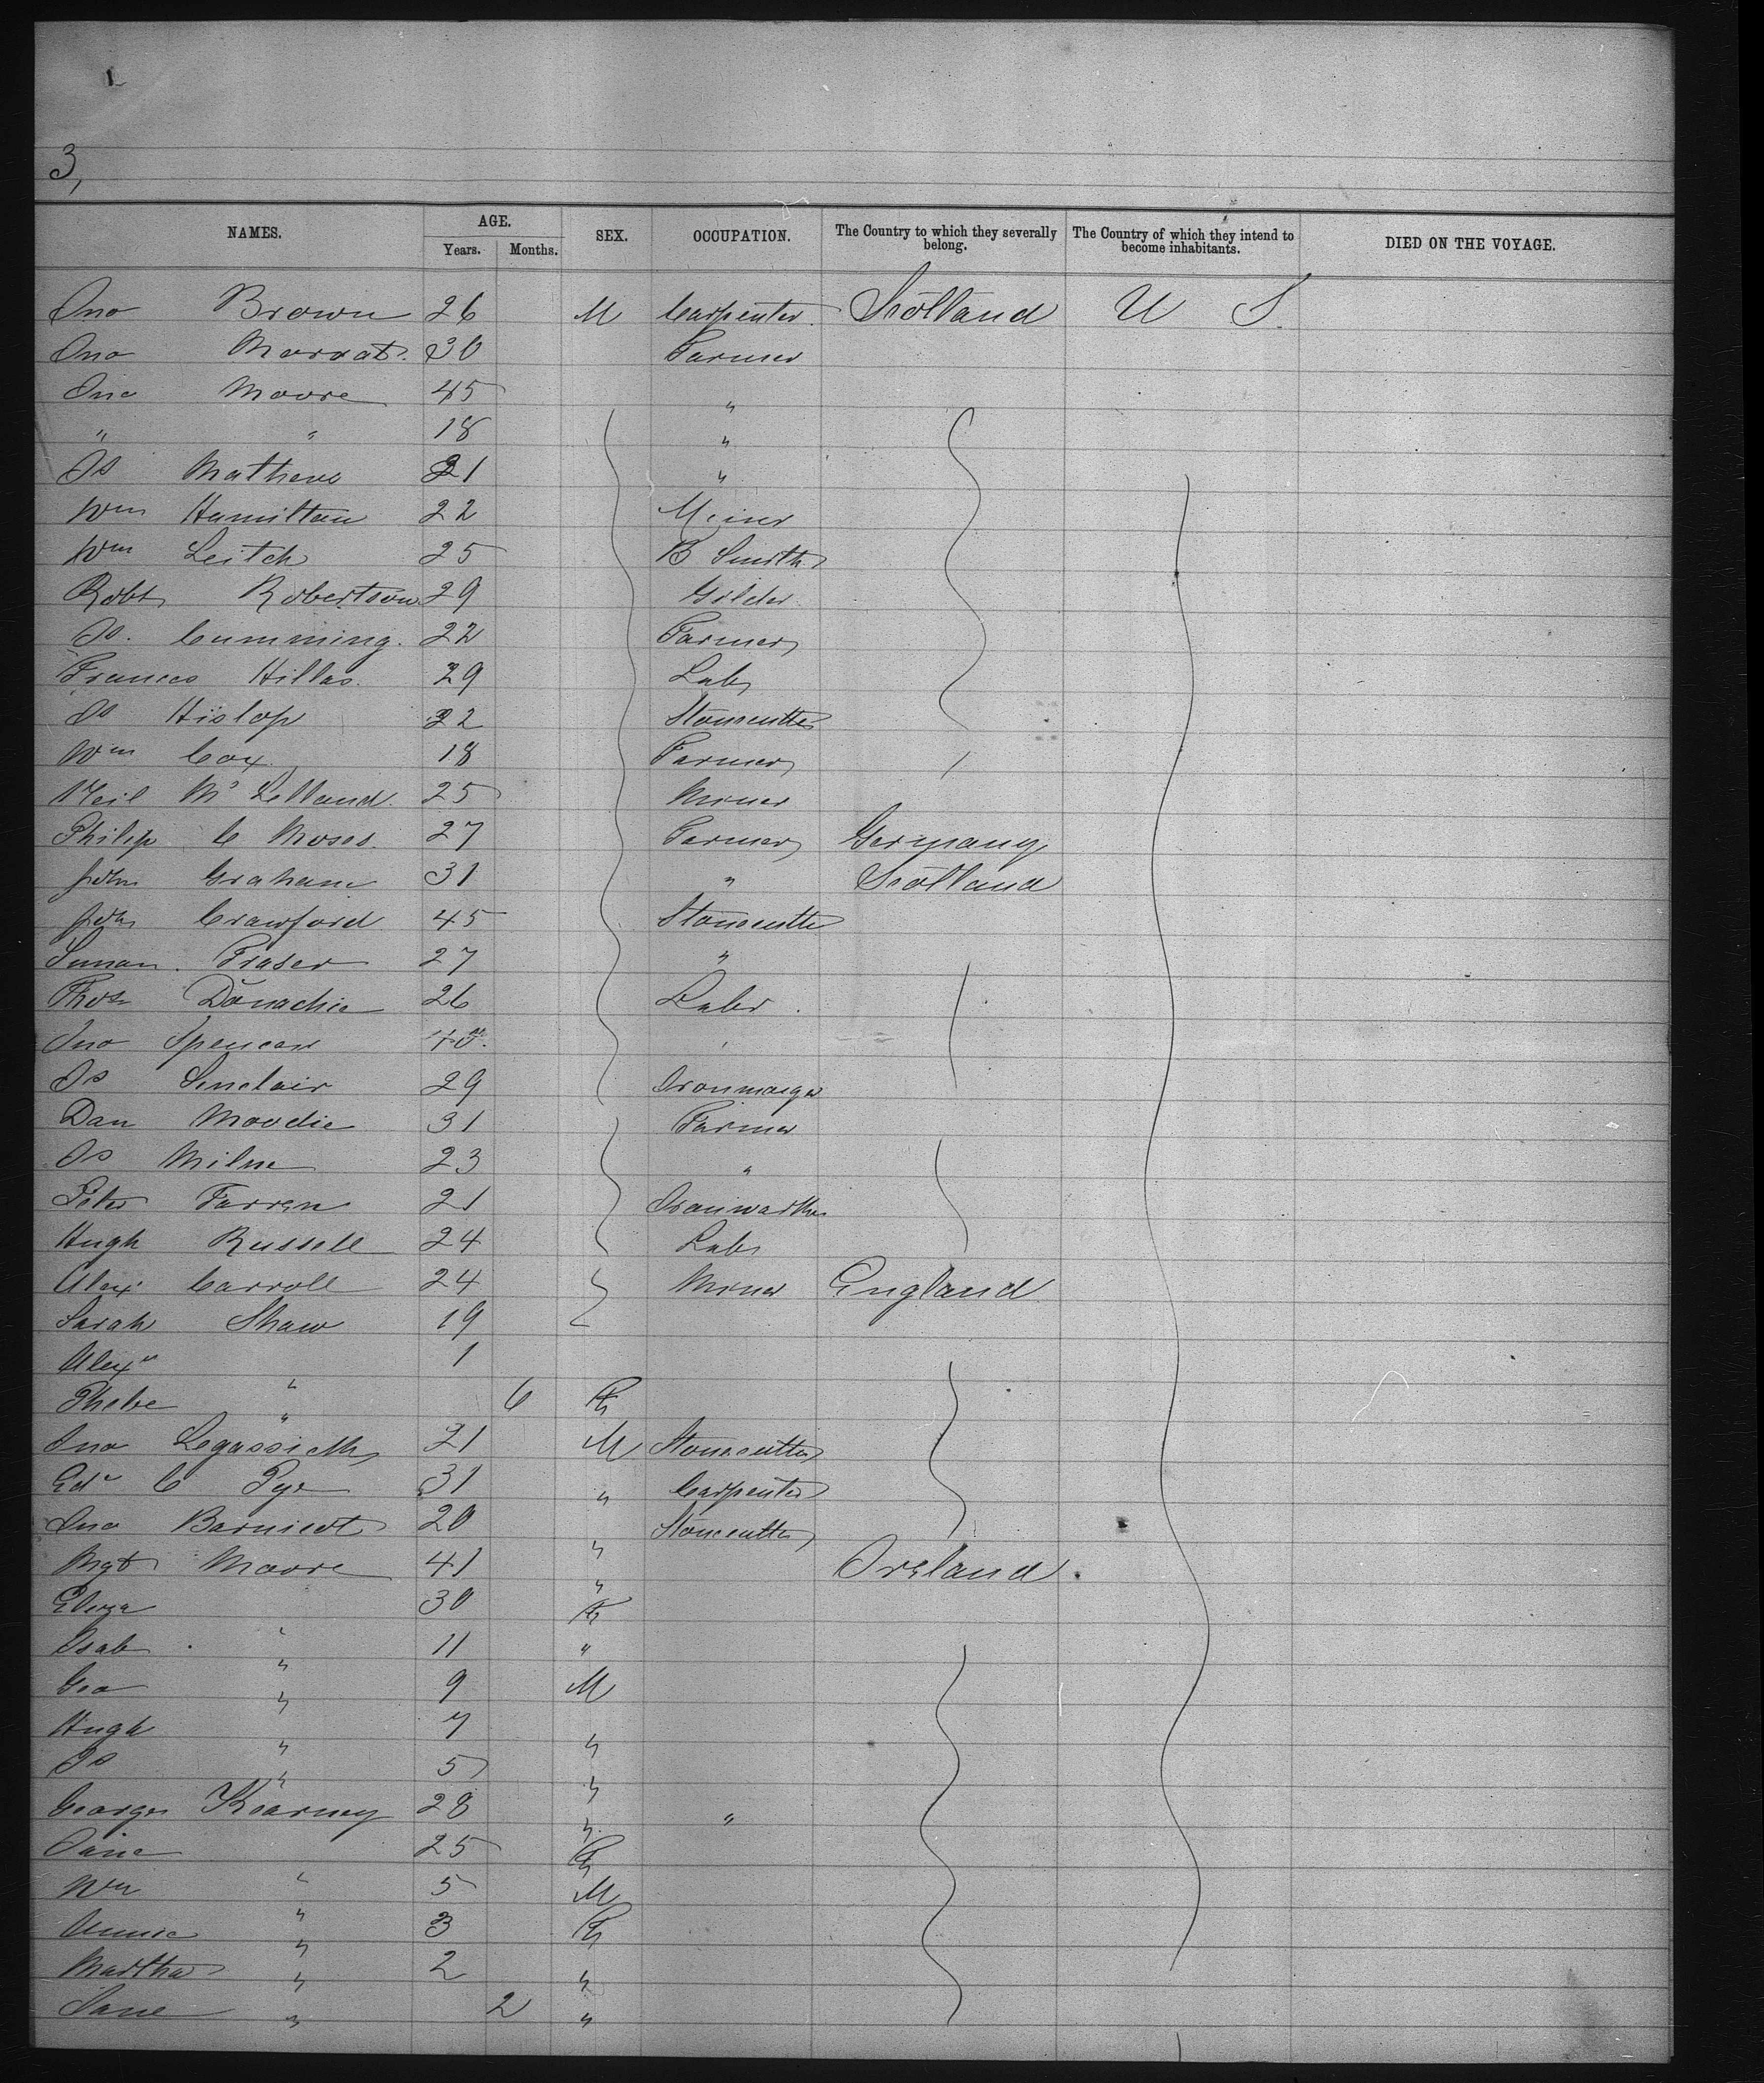 3,
NAMES. AGE. Years. Months. SEX. OCCUPATION. The Country to which they severally belong. The Country of which they intend to become inhabitants. DIED ON THE VOYAGE.
Jno Brown 26 M Carpenter Scotland U S
Jno 30 Farmer
Jno Moore 45 "
" " 18 "
Js Mathews 21 "
Wm Hamilton 22 Miner
Wm Leitch 25 B Smith
Robt Robertson 29 Gilder
Js. Cumming. 22 Farmer
Frances Hillas. 29 Lab
Js Hislop 22 Stonecutter
Wm Cox 18 Farmer
Neil Mc Lelland. 25 Miner
Philip C Moses. 27 Farmer Germany
John Graham 31 " Scotland
John Crawford 45 Stonecutter
Fraser 27 "
Thos Donachie 26 Labr
Jno Spencer
Js Sinclair 29 Ironmonger
Dan Moodie 31 Farmer
Js Milne 23 "
Peter Farren 21 Ironworker
Hugh Russell 24 Labr
Alex Carroll 24 Miner England
Sarah Shaw 19
Alexr " 1
Phebe " 6 F
Jno 21 M Stonecutter
Edw C Pye 31 " Carpenter
Jno 20 " Stonecutter
Mgt Moore 41 " Ireland
Eliza " 30 F
Isab " 11 "
Geo " 9 M
Hugh " 7 "
Js " 5 "
George Kearney 28 " "
Jane " 25 F
Wm " 5 M
Annie " 3 F
Martha " 2 "
Jane " 2 "